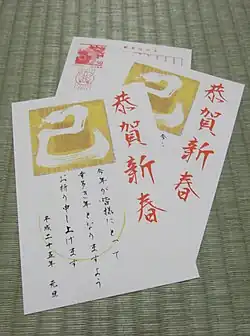 恭賀新春
巳
今年が皆様にとって
幸多き年となりますよう
お祈り申し上げます
平成二十五年 元旦
恭賀新春
巳